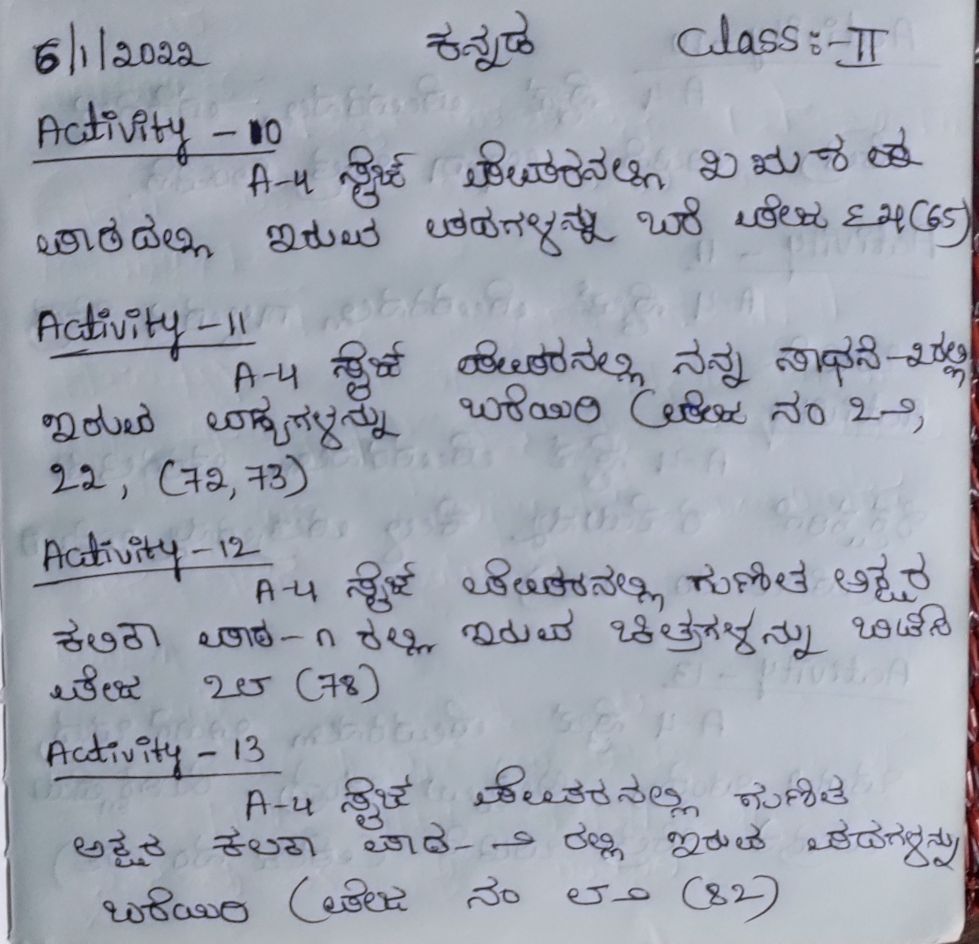 6/1/2022 ಕನ್ನಡ Class:-II
Activity - 10
A-4 ಸೈಜ್ ಪೇಪರನಲ್ಲಿ ಖ ಝ ಠ ಢ
ಪಾಠದಲ್ಲಿ ಇರುವ ಪದಗಳನ್ನು ಬರೆ ಪೇಜ ೬೫(65)
Activity - 11
A-4 ಸೈಜ್ ಪೇಪರನಲ್ಲಿ ನನ್ನ ಸಾಧನೆ-೨ರಲ್ಲಿ
ಇರುವ ವಾಕ್ಯಗಳನ್ನು ಬರೆಯಿರಿ (ಪೇಜ ನಂ
22, (72,73)
Activity - 12
A-4 ಸೈಜ್ ಪೇಪರನಲ್ಲಿ ಗುಣಿತ ಅಕ್ಷರ
ಕಲಿಕಾ ಪಾಠ-೧ ರಲ್ಲಿ ಇರುವ ಚಿತ್ರಗಳನ್ನು ಬಿಡಿಸಿ
ಪೇಜ ೭೮ (78)
Activity - 13
A-4 ಸೈಜ್ ಪೇಪರನಲ್ಲಿ ಗುಣಿತ
ಅಕ್ಷರ ಕಲಿಕಾ ಪಾಠ-೨ ರಲ್ಲಿ ಇರುವ ಪದಗಳನ್ನು
ಬರೆಯಿರಿ (ಪೇಜ ನಂ ೮೨ (82)